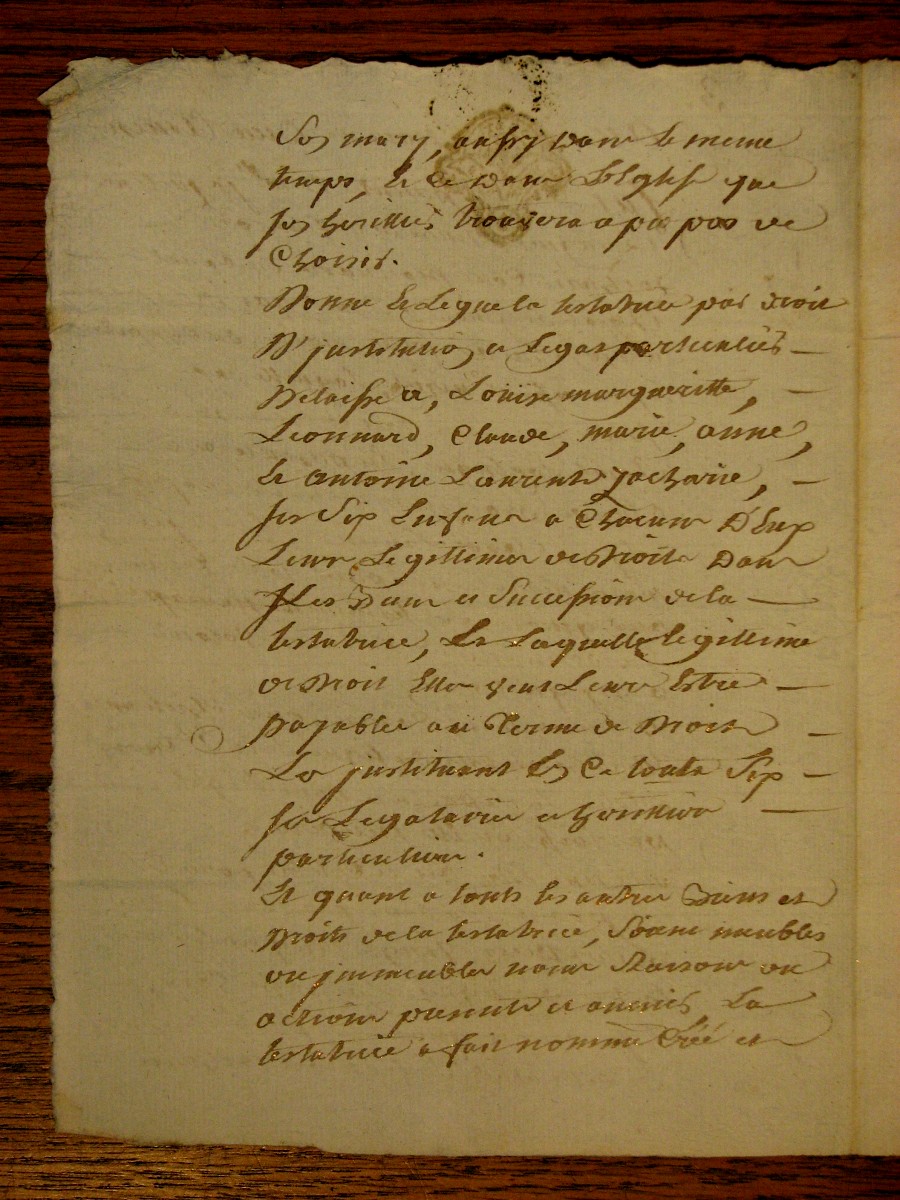 Son mary, aussy dans le meme
temps, et ce dans L'Eglise que
ses heritiers trouvera a pas pos de
Choisir.
Donne et Legue la testatrice par droit
D'justitution et Legat particuliers
Delaisse a, Louise margueritte,
Leonnard, Claude, marie, anne,
et antoine Laurent Zacharie,
ses Six Enfans a Chacun D'Eux
Leur Legittime de Droit Dans
Les Biens et Succession de la
testatrice, La Laquelle Legittime
de Droit Elle veut Leur Estre
payable au Terme de Droit
Les justituant En Ce touts Six
ses Legataires et heritiers
particuliers.
Et quant a touts les autres Biens et
Droits de la testatrice, Soient meubles
ou jmmeubles noms Raisons ou
actions presents et avenir La
testatrice a fait nommé Créé et